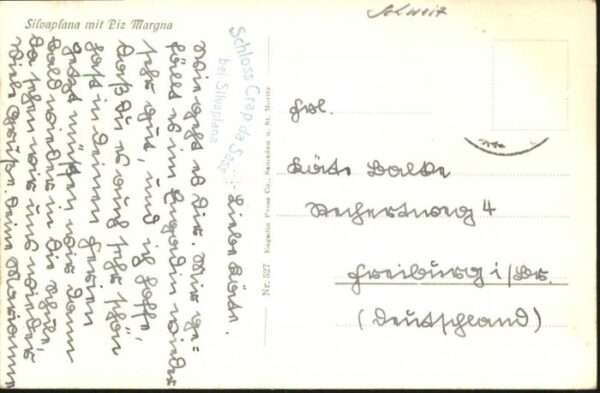 Silvaplana mit Piz Margna
Schweiz
Schloss Crap da Sass
bei Silvaplana
Liebe Käte.
Wie geht es Dir. Mir ge=
fällt es im Engadin wieder
sehr gut, und ich hoffe,
daß Du es auch sehr schön
hast in Deinen Ferien
Jetzt müssen wir dann
bald wieder in die Schule,
da sehen wir uns wieder
Viele Grüße. Deine Marianne
Nr. 527 Engadin Press Co., Samaden u. St. Moritz
Frl.
Käte Balke
Reckertweg 4
Freiburg i/Br.
(Deutschland)